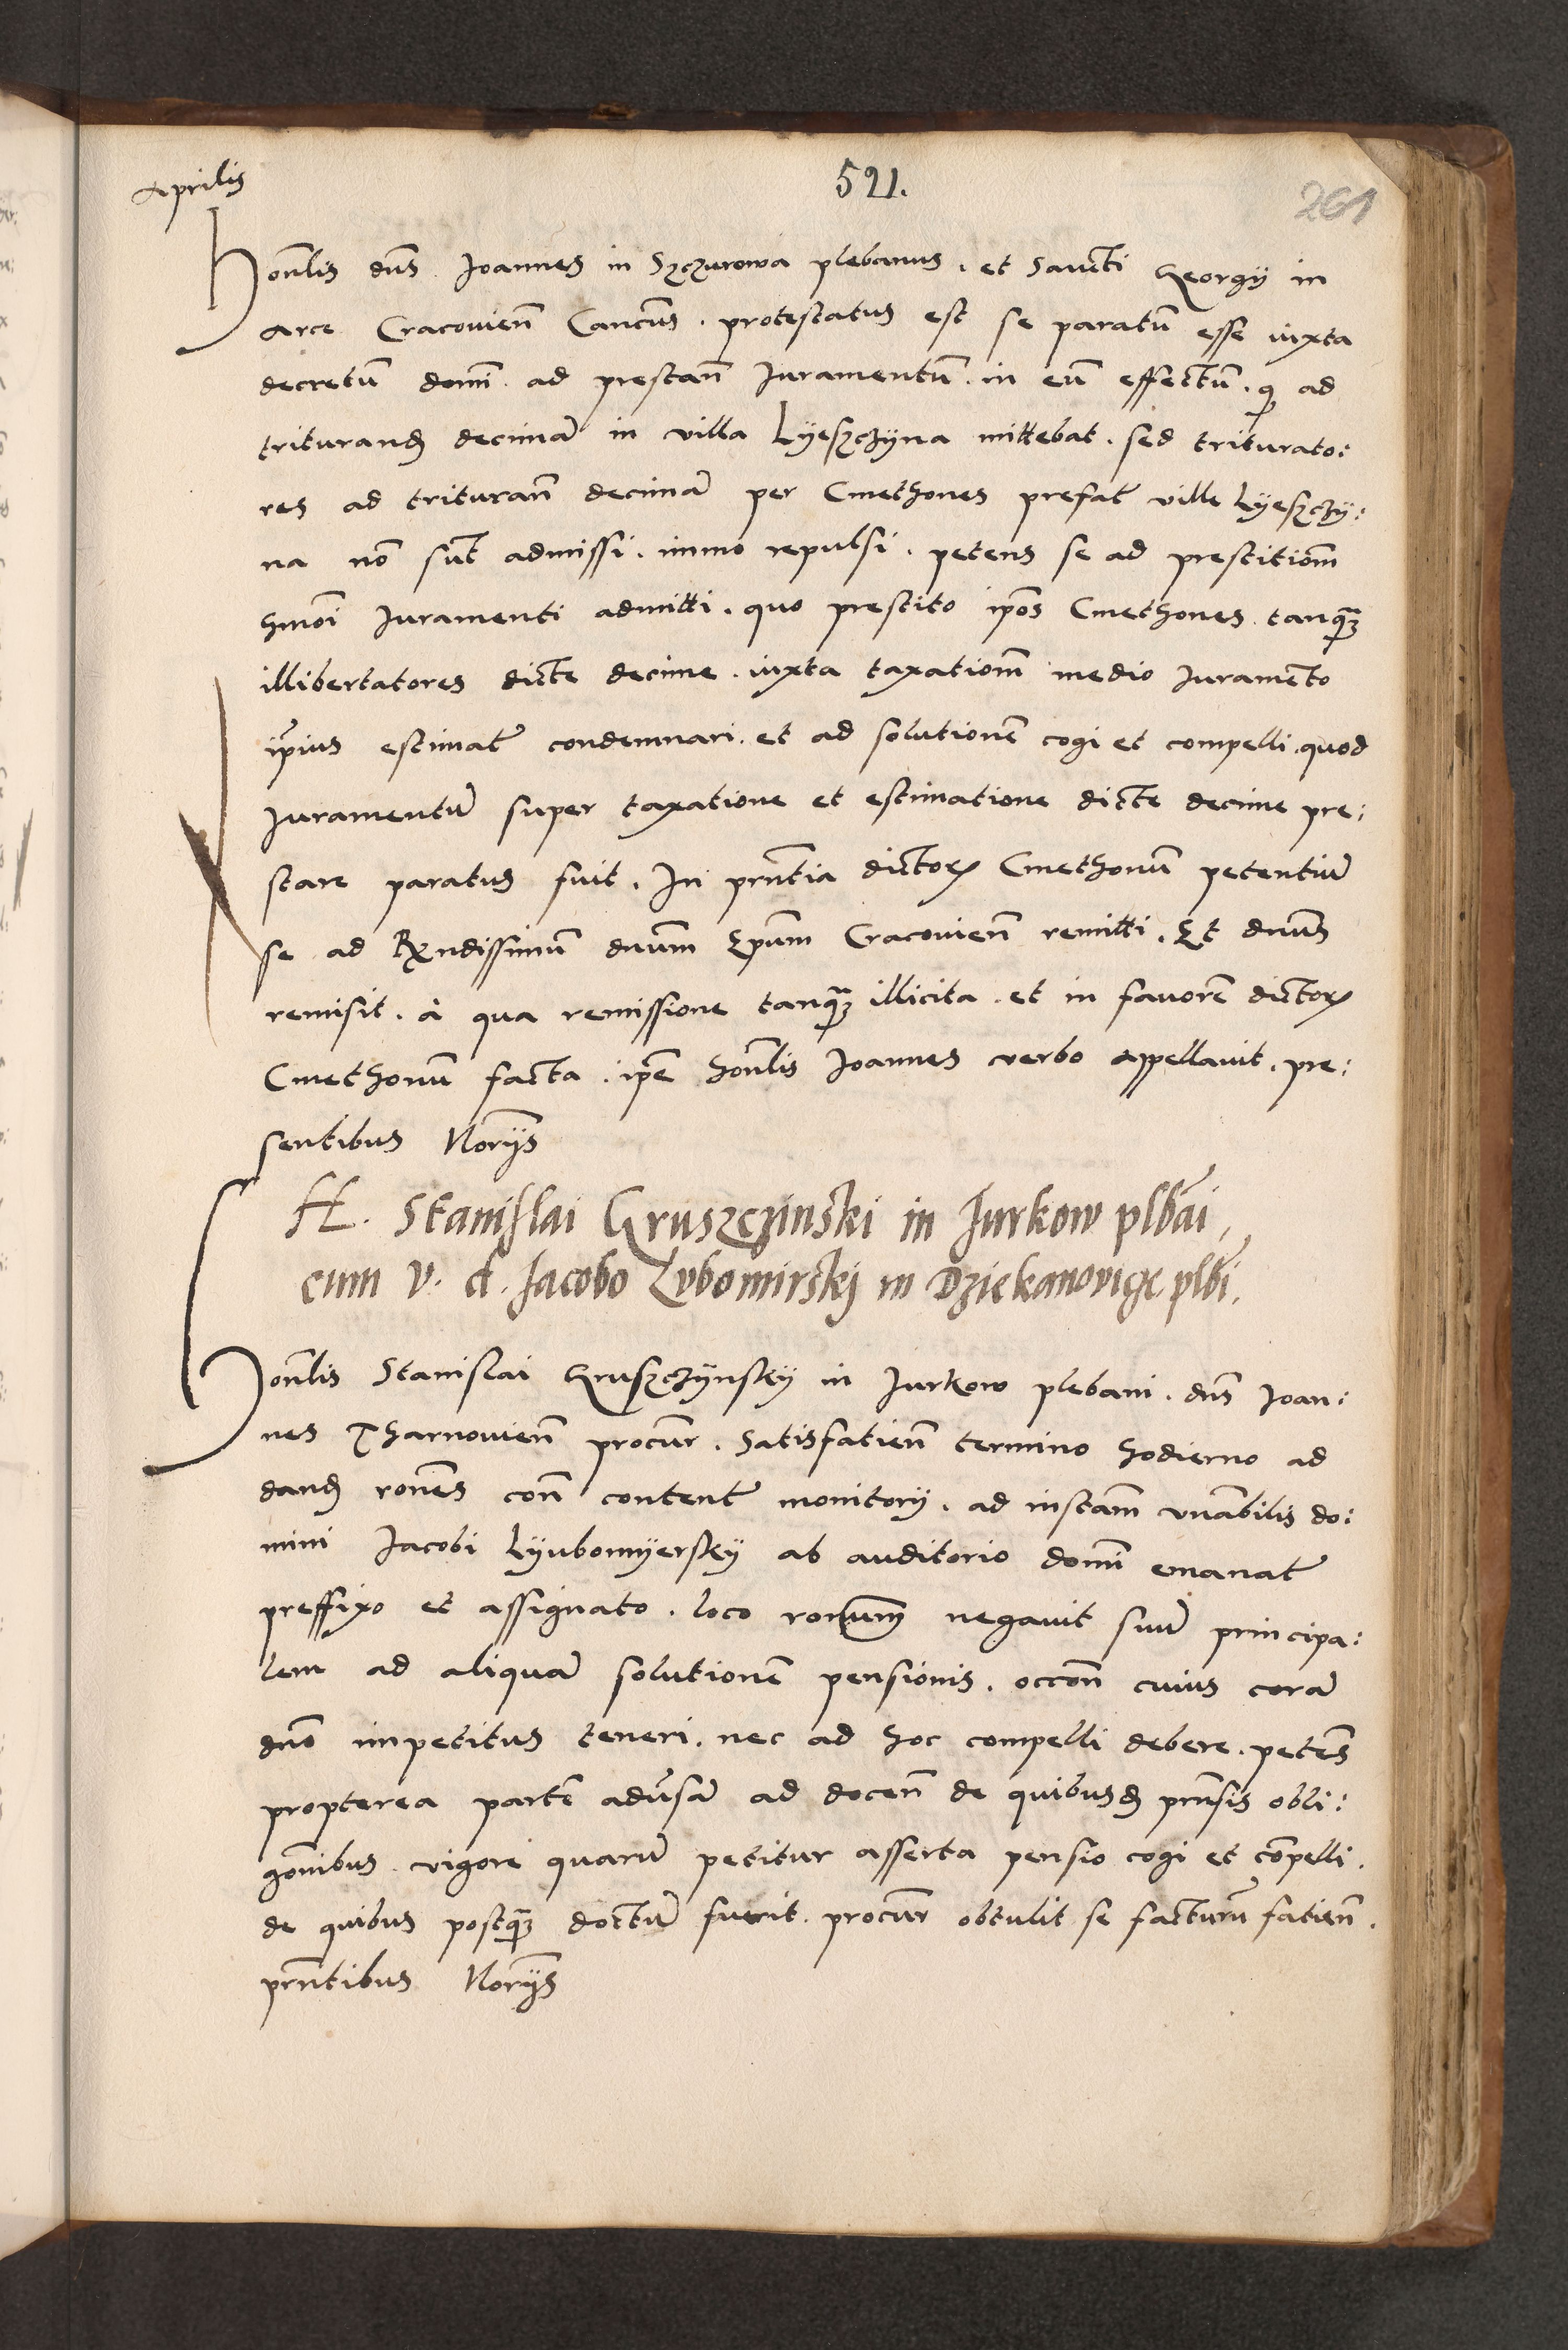 Aprilis
521.
261
Honlis dns Joannes in Szczurowa plebanus. et Sancti Georgij in
Arce Cracovien Cancus. protestatus est se paratu esse iuxta
decretu domi. ad prestan Iuramentu. in eu effectu. q ad
triturand decima in villa Lyeszczyna mittebat. sed triturato:
res ad trituran decima per Cmethones prefat ville Lyeszczy:
na no sut admissi. immo repulsi. petens se ad prestitiom
hmoi Iuramenti admitti. quo prestito ipos Cmethones tanq̃z
illibertatores dicte decime. iuxta taxatiom medio Iuramento
ipius estimat condemnari. et ad solutione cogi et compelli. quod
Iuramentu super taxatione et estimatione dicte decime pre:
stare paratus fuit. In prntia dictor Cmethonu petentiu
se ad Rxndissimu dnum Epum Cracovien remitti. Et dnus
remisit. à qua remissione tanq̃z illicita. et in favore dictor
Cmethonu facta. ipe honlis Joannes verbo appellavit. pre:
sentibus Norijs
H. Stanislai Gruszczinski in Jurkow plbai,
cum v. d. Jacobo Lvbomirskj in Dziekanovicze plbi.
Honlis Stanislai Gruszczÿnskÿ in Jurkow plebani. dns Joan:
nes Tharnovien procur. Satisfatien termino hodierno ad
dand rones con content monitorij. ad instam vnabilis do:
mini Jacobi Lyubomyerskÿ ab auditorio domi emanat
preffixo et assignato. loco ronum negavit suu principa:
lem ad aliqua solutione pensionis. occon cuius cora
dno impetitus teneri. nec ad hoc compelli debere. petes
propterea parte adusa ad docen de quibusd prnsis obli:
gonibus. vigore quaru petitur asserta pensio cogi et copelli.
de quibus postq̃z doctu fuerit. procur obtulit se facturu fatien.
prntibus Norijs